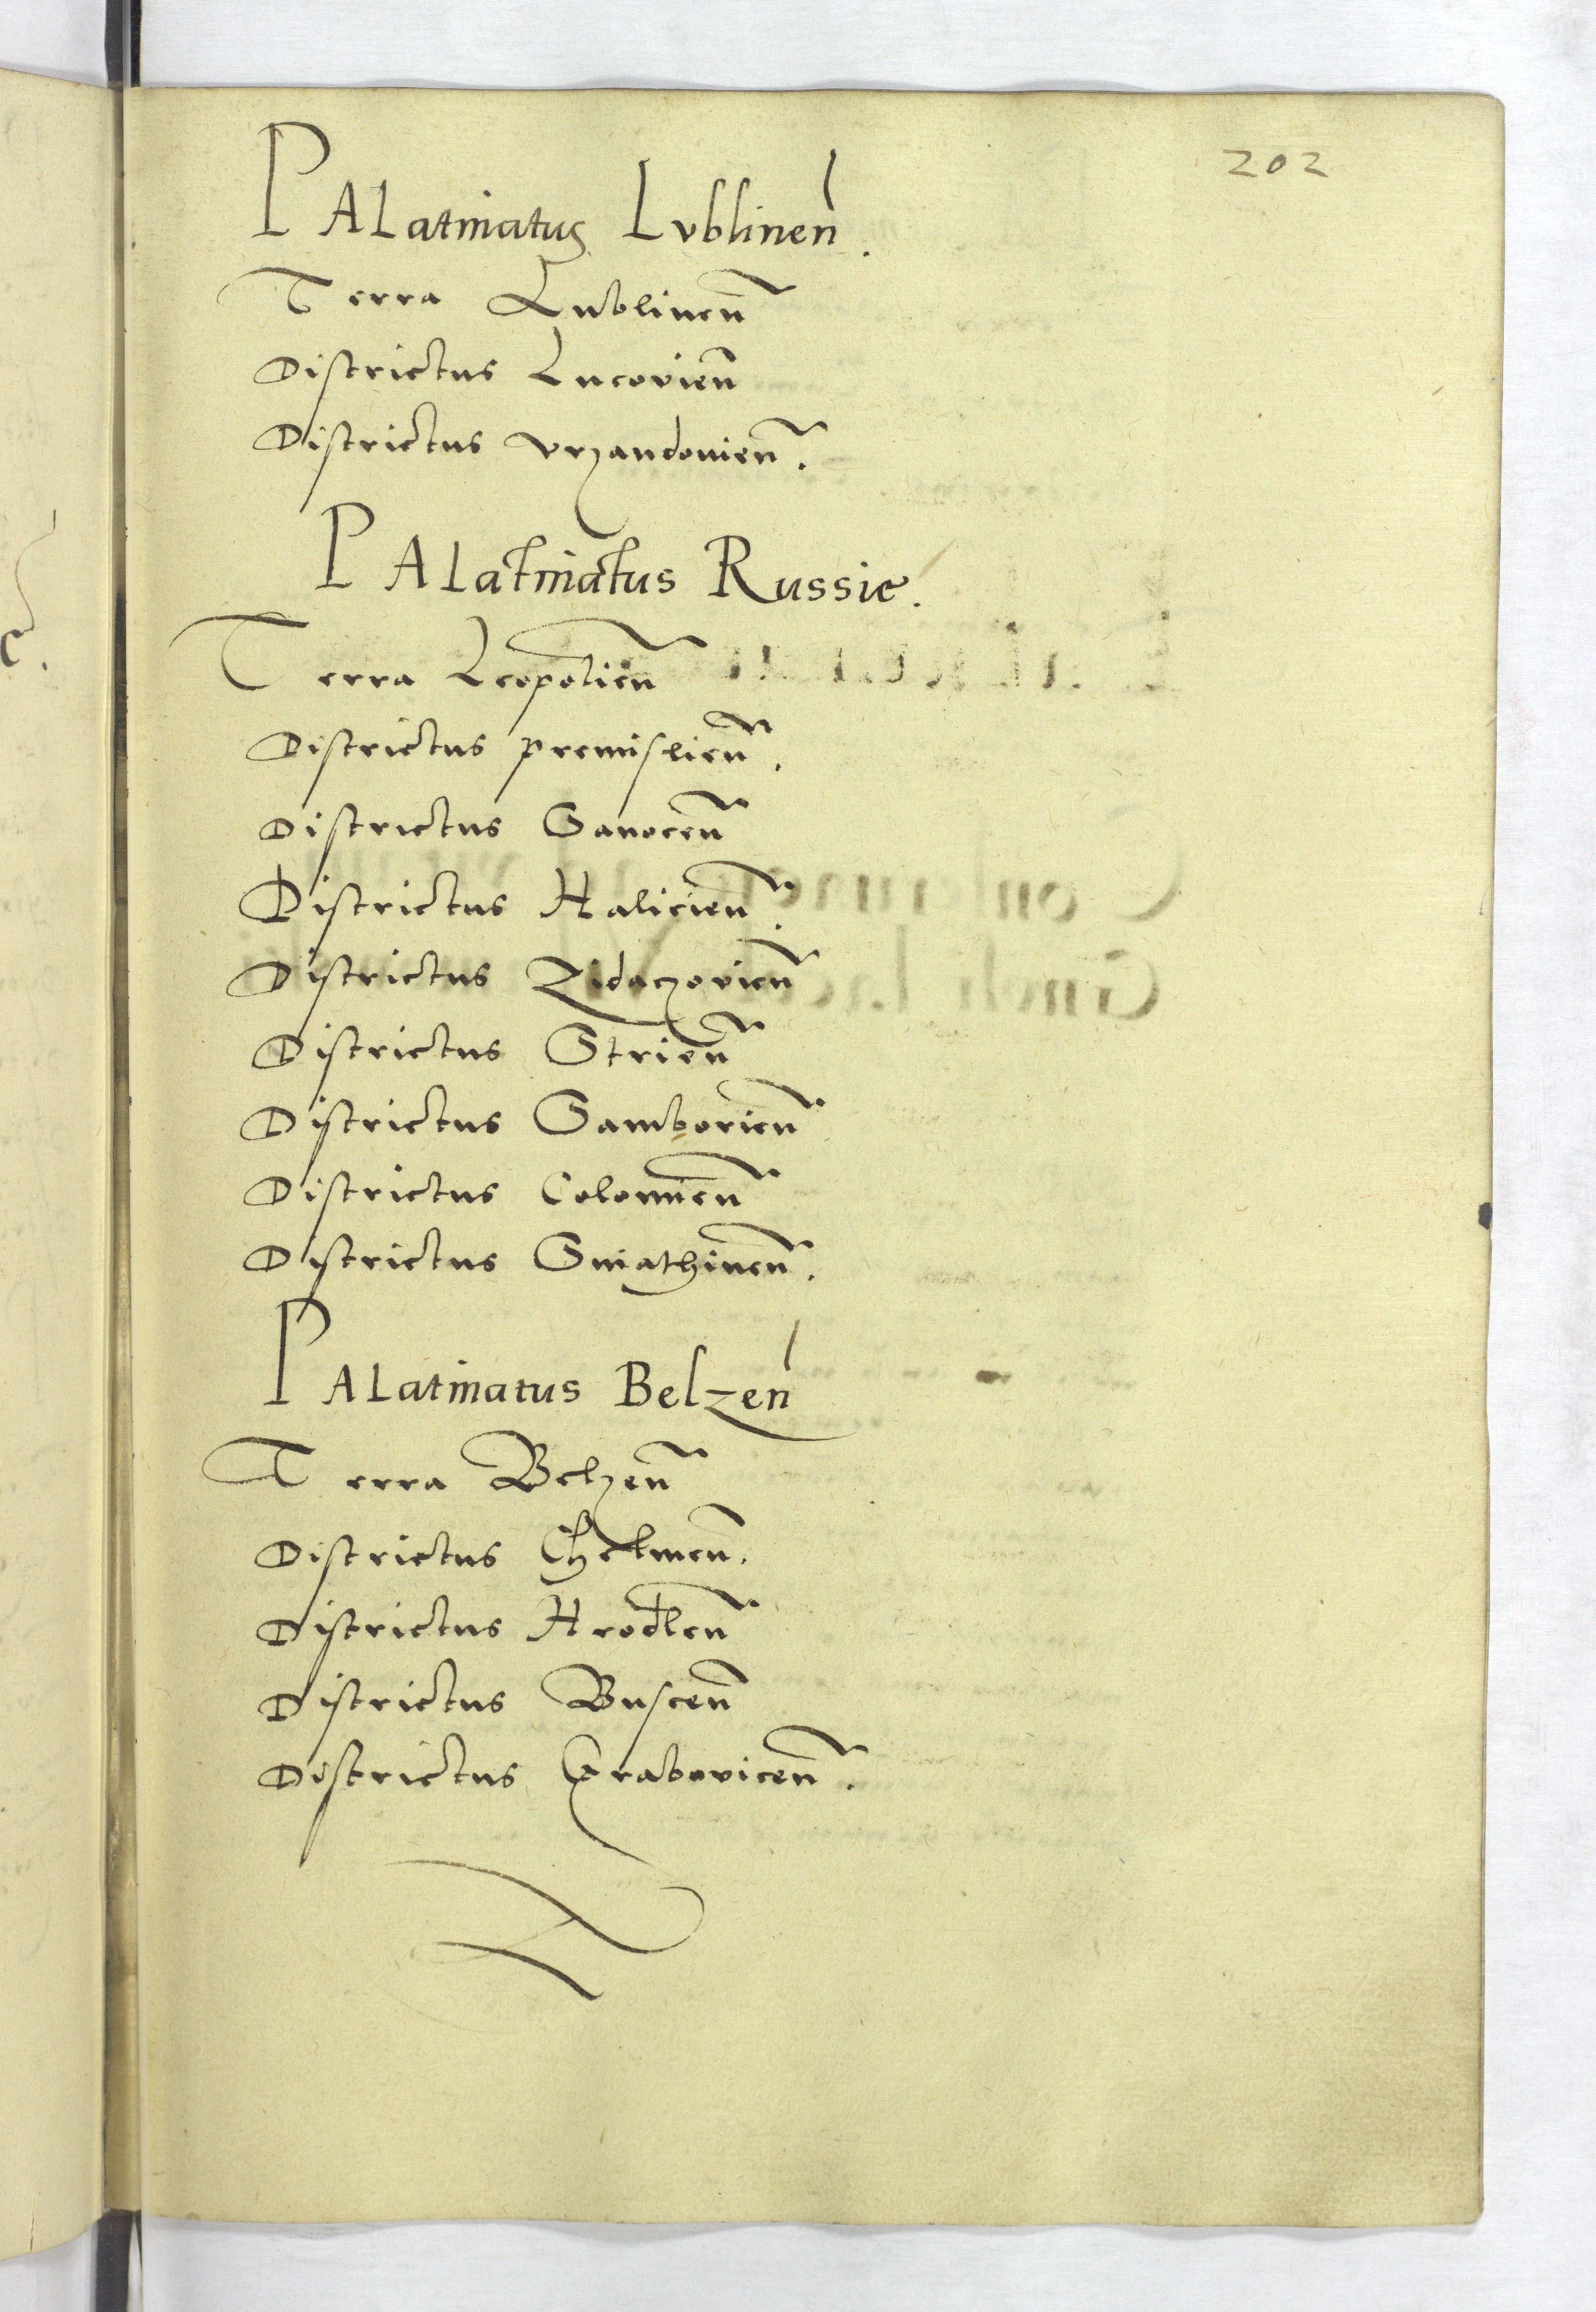 202
PALatinatus Lvblinen̄.
Terra Lublinen̄
Districtus Lucovien̄
Districtus vrzandouien̄.
PALatinatus Russie.
Terra Leopolien̄
Districtus premislien̄.
Districtus Sanocen̄
Districtus Halicien̄.
Districtus Zidaczovien̄
Districtus Strien̄
Districtus Samborien̄
Districtus Colomien̄
Districtus Sniathinen̄.
PALatinatus Belzen̄
Terra Belzen̄
Districtus Chelmen̄.
Districtus Hrodlen̄
Districtus Buscen̄
Districtus Grabovicen̄.